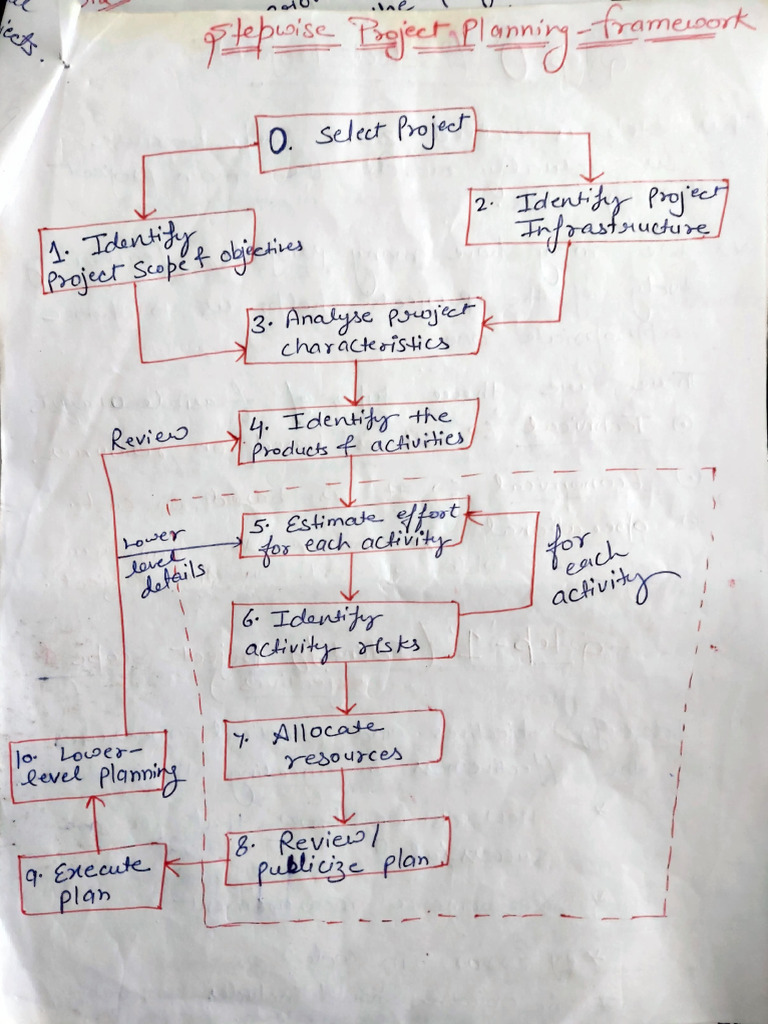 iects.
Stepwise Project Planning - framework
0. Select Project
1. Identify
Project Scope & objectives
2. Identify Project
Infrastructure
3. Analyse project
characteristics
4. Identify the
Products & activities
Review
5. Estimate effort
for each activity
Lower
level
details
for
each
activity
6. Identify
activity risks
7. Allocate
resources
8. Review/
publicize plan
9. Execute
plan
10. Lower-
level planning